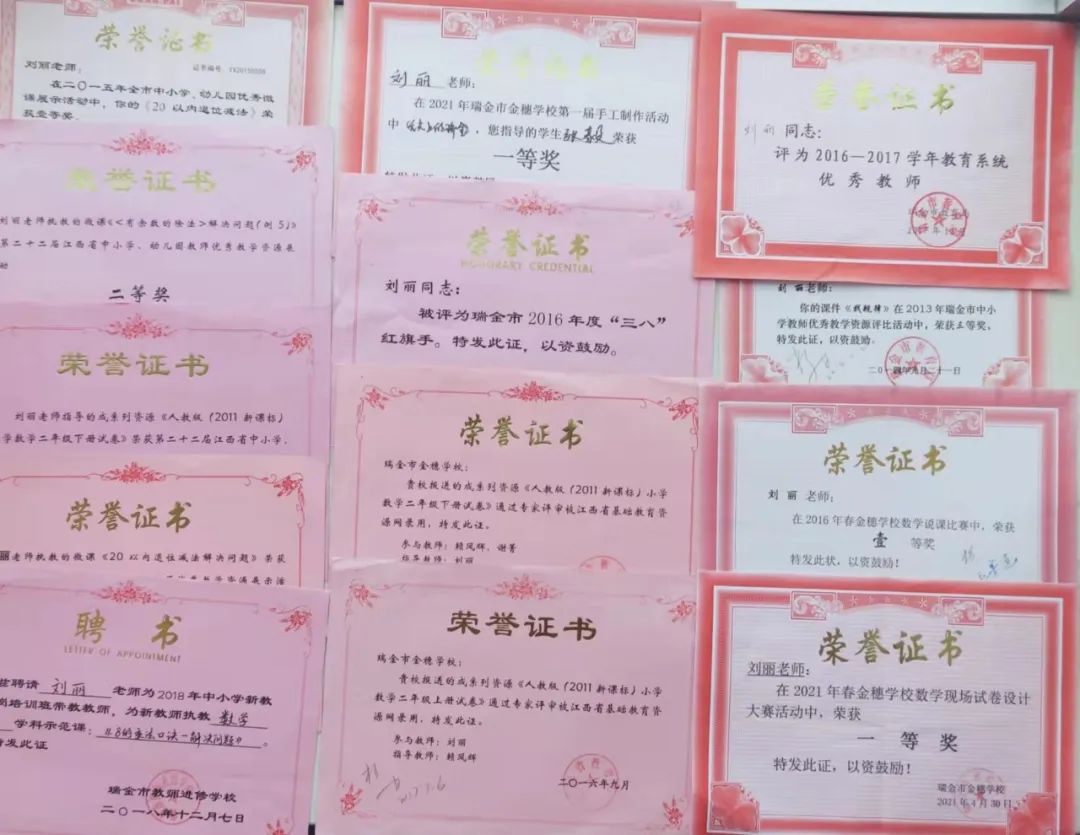 荣誉证书
证书编号：
刘丽老师：
在二〇一五年全市中小学、幼儿园优秀微
课展示活动中，你的《20 以内退位减法》荣
获壹等奖。
荣誉证书
刘丽老师执教的微课《<有余数的除法>解决问题(例 5)》
第二十二届江西省中小学、幼儿园教师优秀教学资源展
动
二等奖
荣誉证书
刘丽老师指导的成系列资源《人教版（2011 新课标）
学数学二年级下册试卷》荣获第二十二届江西省中小学、
荣誉证书
丽老师执教的微课《20 以内退位减法解决问题》荣获
聘 书
LETTER OF APPOINTMENT
兹聘请 刘丽 老师为2018年中小学新教
岗培训班带教教师，为新教师执教 数学
学科示范课：《8的乘法口诀—解决问题》。
特发此证
瑞金市教师进修学校
二〇一八年十二月七日
荣誉证书
刘丽 老师：
在 2021 年瑞金市金穗学校第一届手工制作活动
中，您指导的学生 荣获
一等奖
特发此证，以资鼓励
荣誉证书
HONORARY CREDENTIAL
刘丽同志：
被评为瑞金市 2016 年度“三八”
红旗手。特发此证，以资鼓励。
荣誉证书
瑞金市金穗学校：
贵校报送的成系列资源《人教版（2011 新课标）小学
数学二年级下册试卷》通过专家评审被江西省基础教育资
源网录用，特发此证。
参与教师：赖凤辉、谢菁
指导教师：刘丽
荣誉证书
瑞金市金穗学校：
贵校报送的成系列资源《人教版（2011 新课标）小学
数学二年级上册试卷》通过专家评审被江西省基础教育资
源网录用，特发此证。
参与教师：刘丽
指导教师：赖凤辉
二〇一六年九月
荣誉证书
刘丽 同志：
评为 2016—2017 学年教育系统
优秀教师
刘 丽老师：
你的课件《找规律》在 2013 年瑞金市中小
学教师优秀教学资源评比活动中，荣获三等奖，
特发此证，以资鼓励。
二〇一四年九月二十一日
荣誉证书
刘 丽 老师：
在 2016 年春金穗学校数学说课比赛中，荣获
壹 等奖
特发此状，以资鼓励！
荣誉证书
刘丽老师：
在 2021 年春金穗学校数学现场试卷设计
大赛活动中，荣获
一 等 奖
特发此证，以资鼓励！
瑞金市金穗学校
2021 年 4 月 30 日